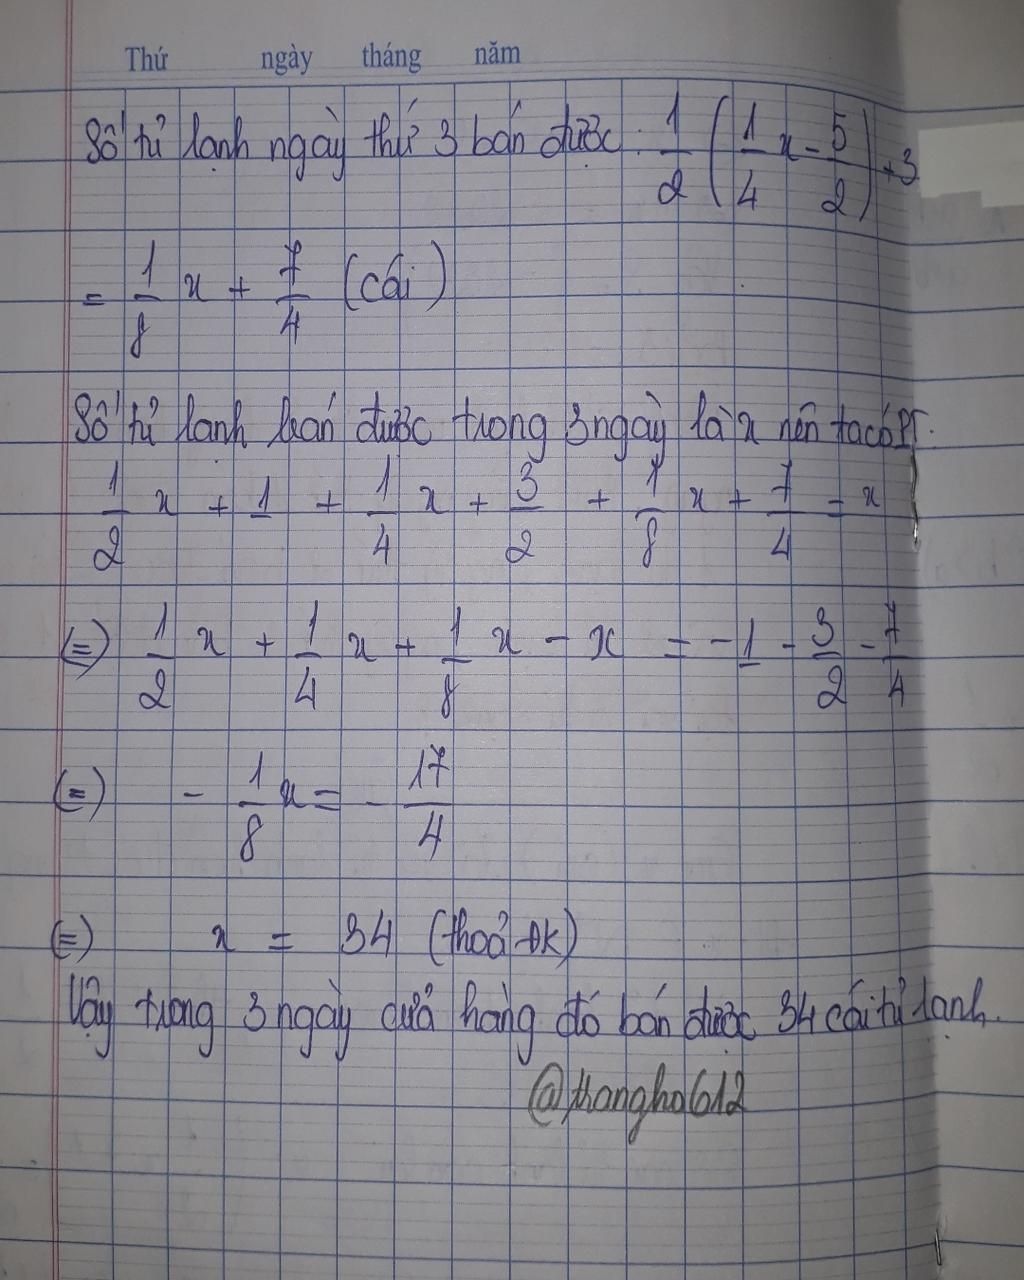 Thứ ngày tháng năm
Số tủ lạnh ngày thứ 3 bán được: 1/2 (1/4 x - 5/2) + 3
= 1/8 x + 7/4 (cái)
Số tủ lạnh bán được trong 3 ngày là x nên ta có PT.
1/2 x + 1 + 1/4 x + 3/2 + 1/8 x + 7/4 = x
(=) 1/2 x + 1/4 x + 1/8 x - x = -1 - 3/2 - 7/4
(=) - 1/8 x = - 17/4
(=) x = 34 (thoả ĐK)
Vậy trong 3 ngày cửa hàng đó bán được 34 cái tủ lạnh.
@thangha612